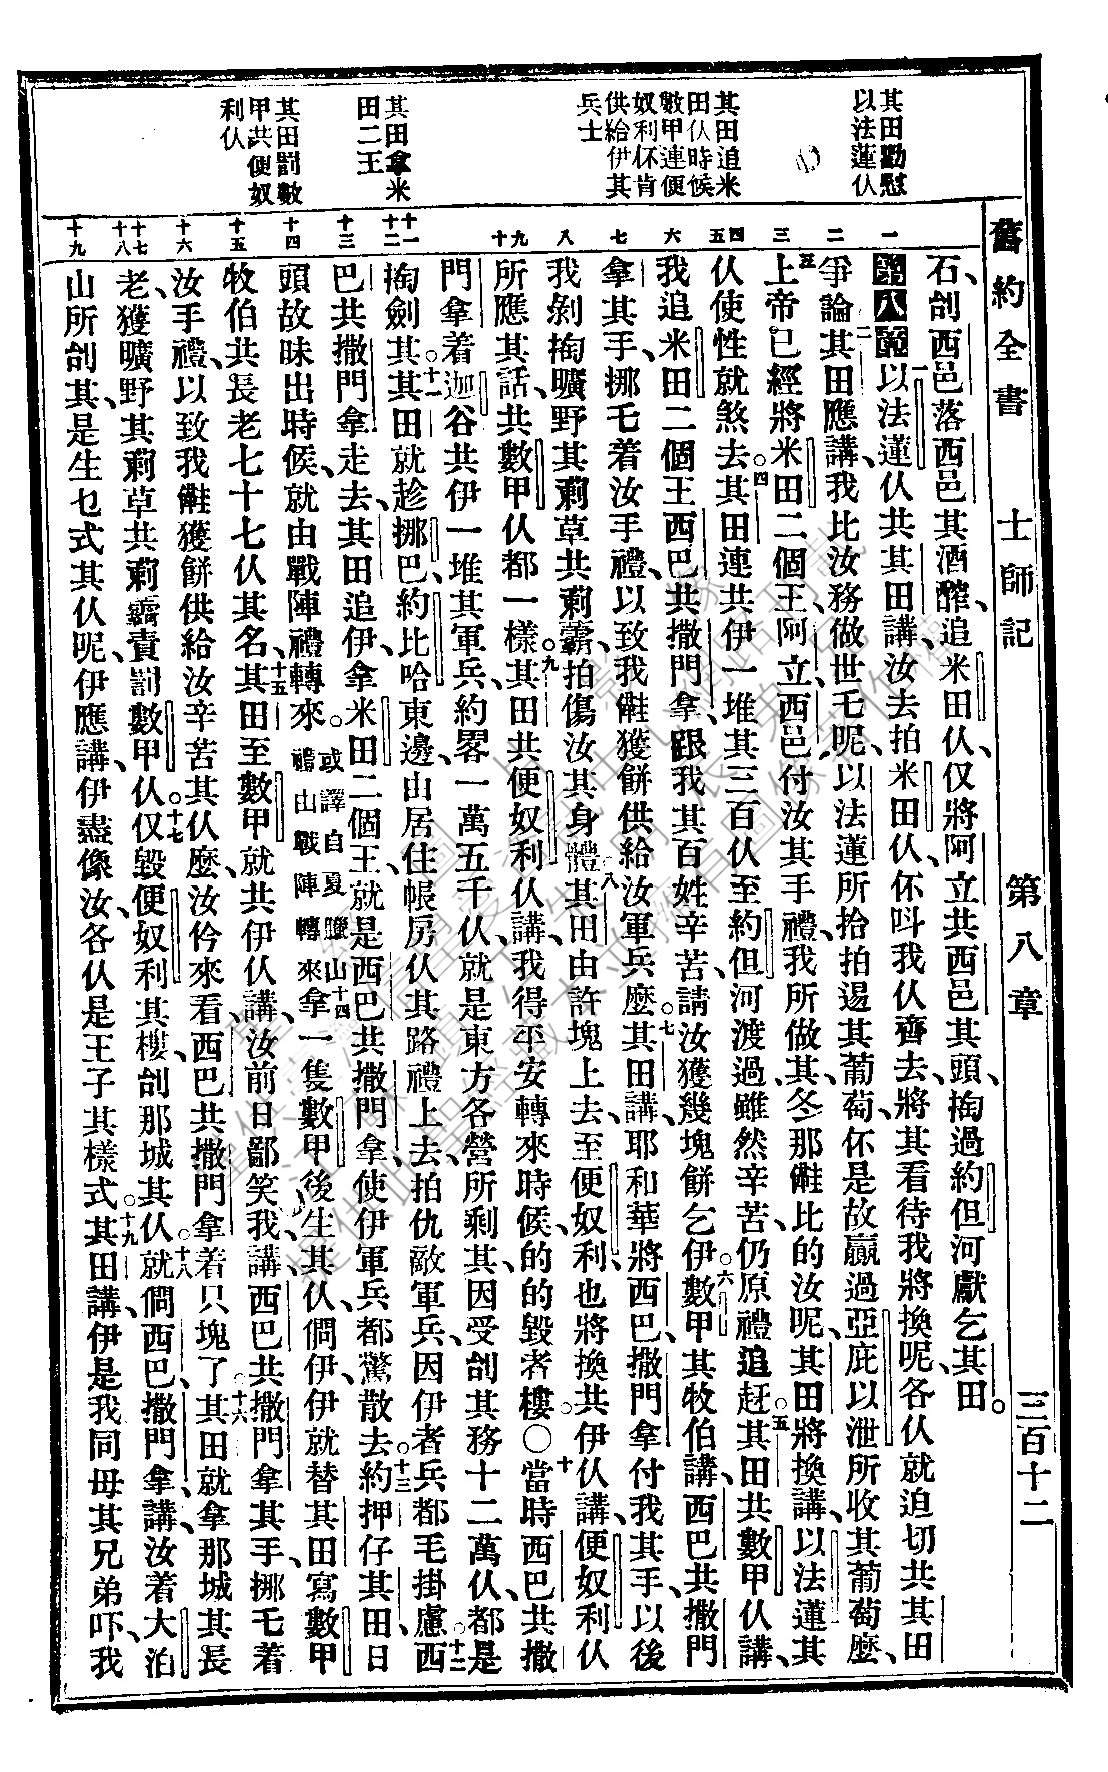 舊約全書　士師記　第八章　三百十二
其田勸慰
以法蓮仈
其田追米
田仈時候
數甲連便
奴利伓肯
供給伊其
兵士
其田拿米
田二王
其田罰數
甲共便奴
利仈
一　二　三　四　五　六　七　八　九　十　十一　十二　十三　十四　十五　十六　十七　十八　十九
石、刣西邑落西邑其酒醡、追米田仈、仅將阿立共西邑其頭、掏過約但河獻乞其田。
第八章一以法蓮仈共其田講、汝去拍米田仈、伓叫我仈齊去、將其看待我將換呢、各仈就迫切共其田
爭論、二其田應講、我比汝務做世乇呢、以法蓮所拾拍逿其葡萄、伓是故贏過亞庇以泄所收其葡萄麼、
三上帝已經將米田二個王、阿立西邑付汝其手禮、我所做其、冬那𣍐比的汝呢、其田將換講、以法蓮其
仈使性就煞去。四其田連共伊一堆其三百仈至約但河渡過、雖然辛苦、仍原禮追赶。五其田共數甲仈講、
我追米田二個王西巴共撒門拿、跟我其百姓辛苦、請汝獲幾塊餅乞伊。六數甲其牧伯講、西巴共撒門
拿其手、挪乇着汝手禮、以致我𣍐獲餅供給汝軍兵麼。七其田講、耶和華將西巴、撒門拿付我其手、以後
我剝掏曠野其莿草共莿藦、拍傷汝其身體。八其田由許塊上去、至便奴利、也將換共伊仈講、便奴利仈
所應其話、共數甲仈都一樣。九其田共便奴利仈講、我得平安轉來時候、的的毀者樓。○十當時西巴共撒
門拿着迦谷、共伊一堆其軍兵、約畧一萬五千仈、就是東方各營所剩其、因受刣其務十二萬仈、都是
掏劍其。十一其田就趁挪巴、約比哈東邊山居住帳房仈其路禮上去、拍仇敵軍兵、因伊者兵都毛掛慮。十二西
巴共撒門拿走去、其田追伊、拿米田二個王、就是西巴共撒門拿、使伊軍兵都驚散去。十三約押仔其田、日
頭故昧出時候、就由戰陣禮轉來。或譯自夏臘山禮山戰陣轉來十四拿一隻數甲後生其仈、僩伊、伊就替其田寫數甲
牧伯共長老七十七仈其名。十五其田至數甲、就共伊仈講、汝前日鄙笑我、講、西巴共撒門拿其手、挪乇着
汝手禮、以致我𣍐獲餅供給汝辛苦其仈麼、汝仱來看、西巴共撒門拿着只塊了。十六其田就拿那城其長
老、獲曠野其莿草共莿藦、責罰數甲仈。十七仅毀便奴利其樓、刣那城其仈。十八就僩西巴、撒門拿講、汝着大泊
山所刣其、是生乜式其仈呢、伊應講、伊盡像汝、各仈是王子其樣式。十九其田講、伊是我同母其兄弟吓、我